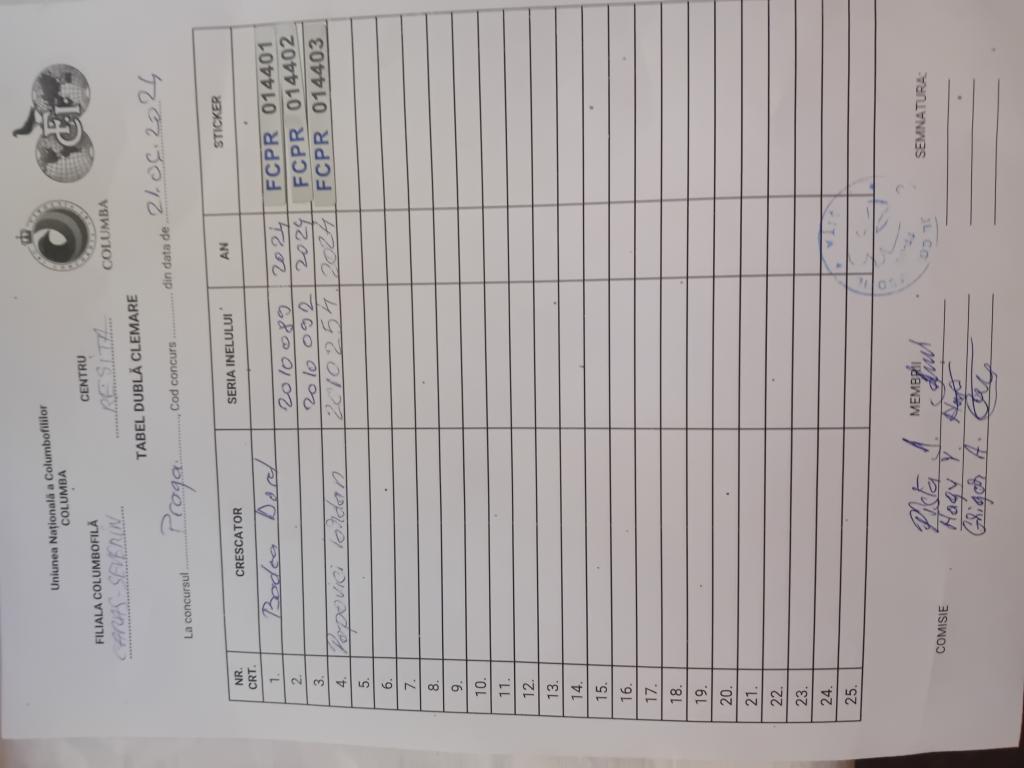 Uniunea Națională a Columbofililor
COLUMBA
COLUMBA
FCI
FILIALA COLUMBOFILĂ CENTRU
CARAȘ-SEVERIN REȘIȚA
TABEL DUBLĂ CLEMARE
La concursul Praga, Cod concurs din data de 21.06.2024
NR. CRT. CRESCATOR SERIA INELULUI AN STICKER
1. Bodea Dorel 2010089 2024 FCPR 014401
2. 2010092 2024 FCPR 014402
3. FCPR 014403
4. Popovici 2010254 2024
5.
6.
7.
8.
9.
10.
11.
12.
13.
14.
15.
16.
17.
18.
19.
20.
21.
22.
23.
24.
25.
COMISIE MEMBRII SEMNATURA: